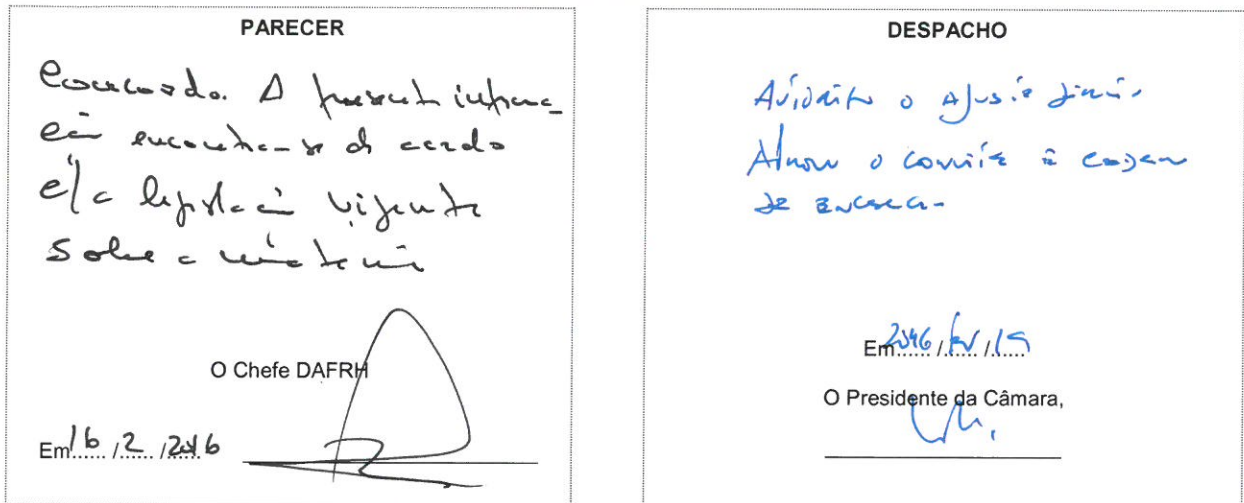 PARECER
Concordo. A present informa_
ção encontra-se de acordo
c/a legislação vigente
sobre a matéria
O Chefe DAFRH
Em 16 / 2 / 2016
DESPACHO
Autorizo o Ajuste
o convite à
de
Em 2016 / fev / 19
O Presidente da Câmara,